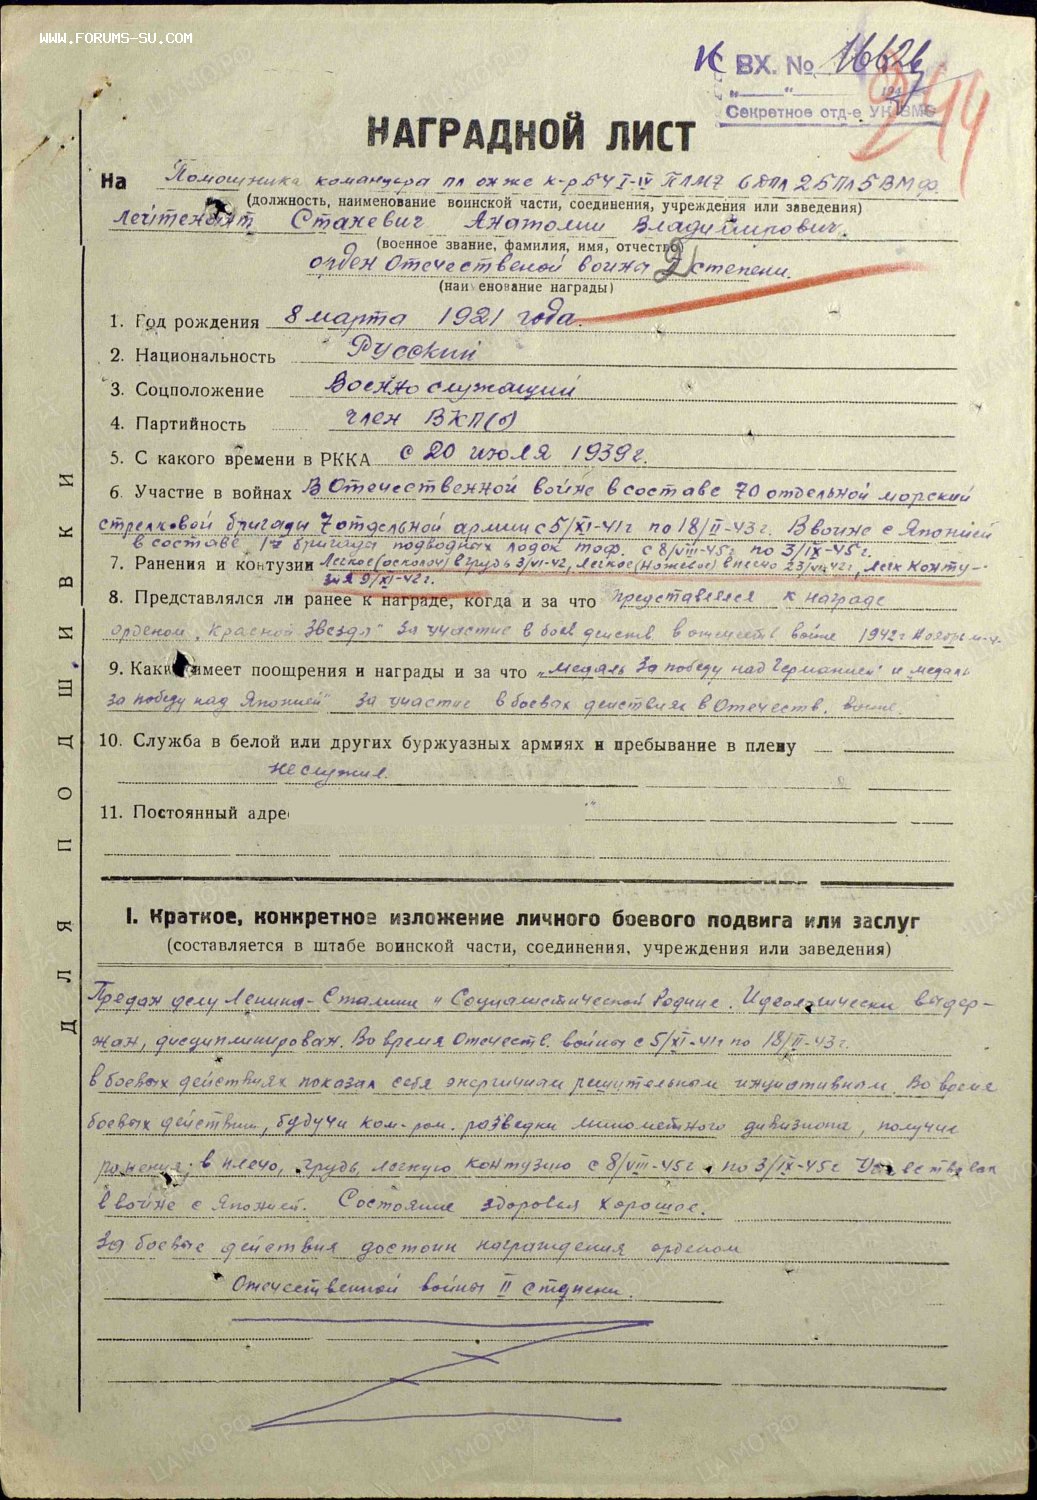 WWW.FORUMS-SU.COM
ВХ. № 1662
194
Секретное отд-е УК ВМС
244
НАГРАДНОЙ ЛИСТ
на Помощника командира пл онже к-р БЧ I-IV ПЛМ7 6 дпл 2БПЛ 5ВМФ
(должность, наименование воинской части, соединения, учреждения или заведения)
лейтенант Станевич Анатолий Владимирович.
(военное звание, фамилия, имя, отчество)
орден Отечественой войны 2 степени.
(наименование награды)
1. Год рождения 8 марта 1921 года.
2. Национальность Русский
3. Соцположение Военнослужащий
4. Партийность член ВКП(б)
5. С какого времени в РККА с 20 июля 1939г.
6. Участие в войнах В Отечественной войне в составе 70 отдельной морской
стрелковой бригады 7 отдельной армии с 5/XI-41г по 18/II-43г. В войне с Японией
в составе 17 бригады подводных лодок тоф. с 8/VIII-45г по 3/IX-45г.
7. Ранения и контузии Легкое(осколоч) в грудь 3/VI-42, легкое(ножевое) в плечо 23/VII 42г, легк конту-
зия 9/XI-42г.
8. Представлялся ли ранее к награде, когда и за что представлялся к награде
орденом „Красной Звезды" за участие в боев действ в отечеств войне 1942г Ноябрь м-ц.
9. Какие имеет поощрения и награды и за что „медаль За победу над Германией" и медаль
за победу над Японией" за участие в боевых действиях в Отечеств. войне.
10. Служба в белой или других буржуазных армиях и пребывание в плену
не служил.
11. Постоянный адре
ДЛЯ ПОДШИВКИ
I. Краткое, конкретное изложение личного боевого подвига или заслуг
(составляется в штабе воинской части, соединения, учреждения или заведения)
Предан делу Ленина-Сталина и Социалистической Родине. Идеологически выдер-
жан, дисциплинирован. Во время Отечеств. войны с 5/XI-41г по 18/II-43г.
в боевых действиях показал себя энергичным решительным инициативным. Во время
боевых действий, будучи ком-ром. разведки минометного дивизиона, получил
ранения; в плечо, грудь, легкую контузию с 8/VIII-45г по 3/IX-45г Участвовал
в войне с Японией. Состояние здоровья хорошее.
За боевые действия достоин награждения орденом
Отечественной войны II степени.
ЦАМО РФ